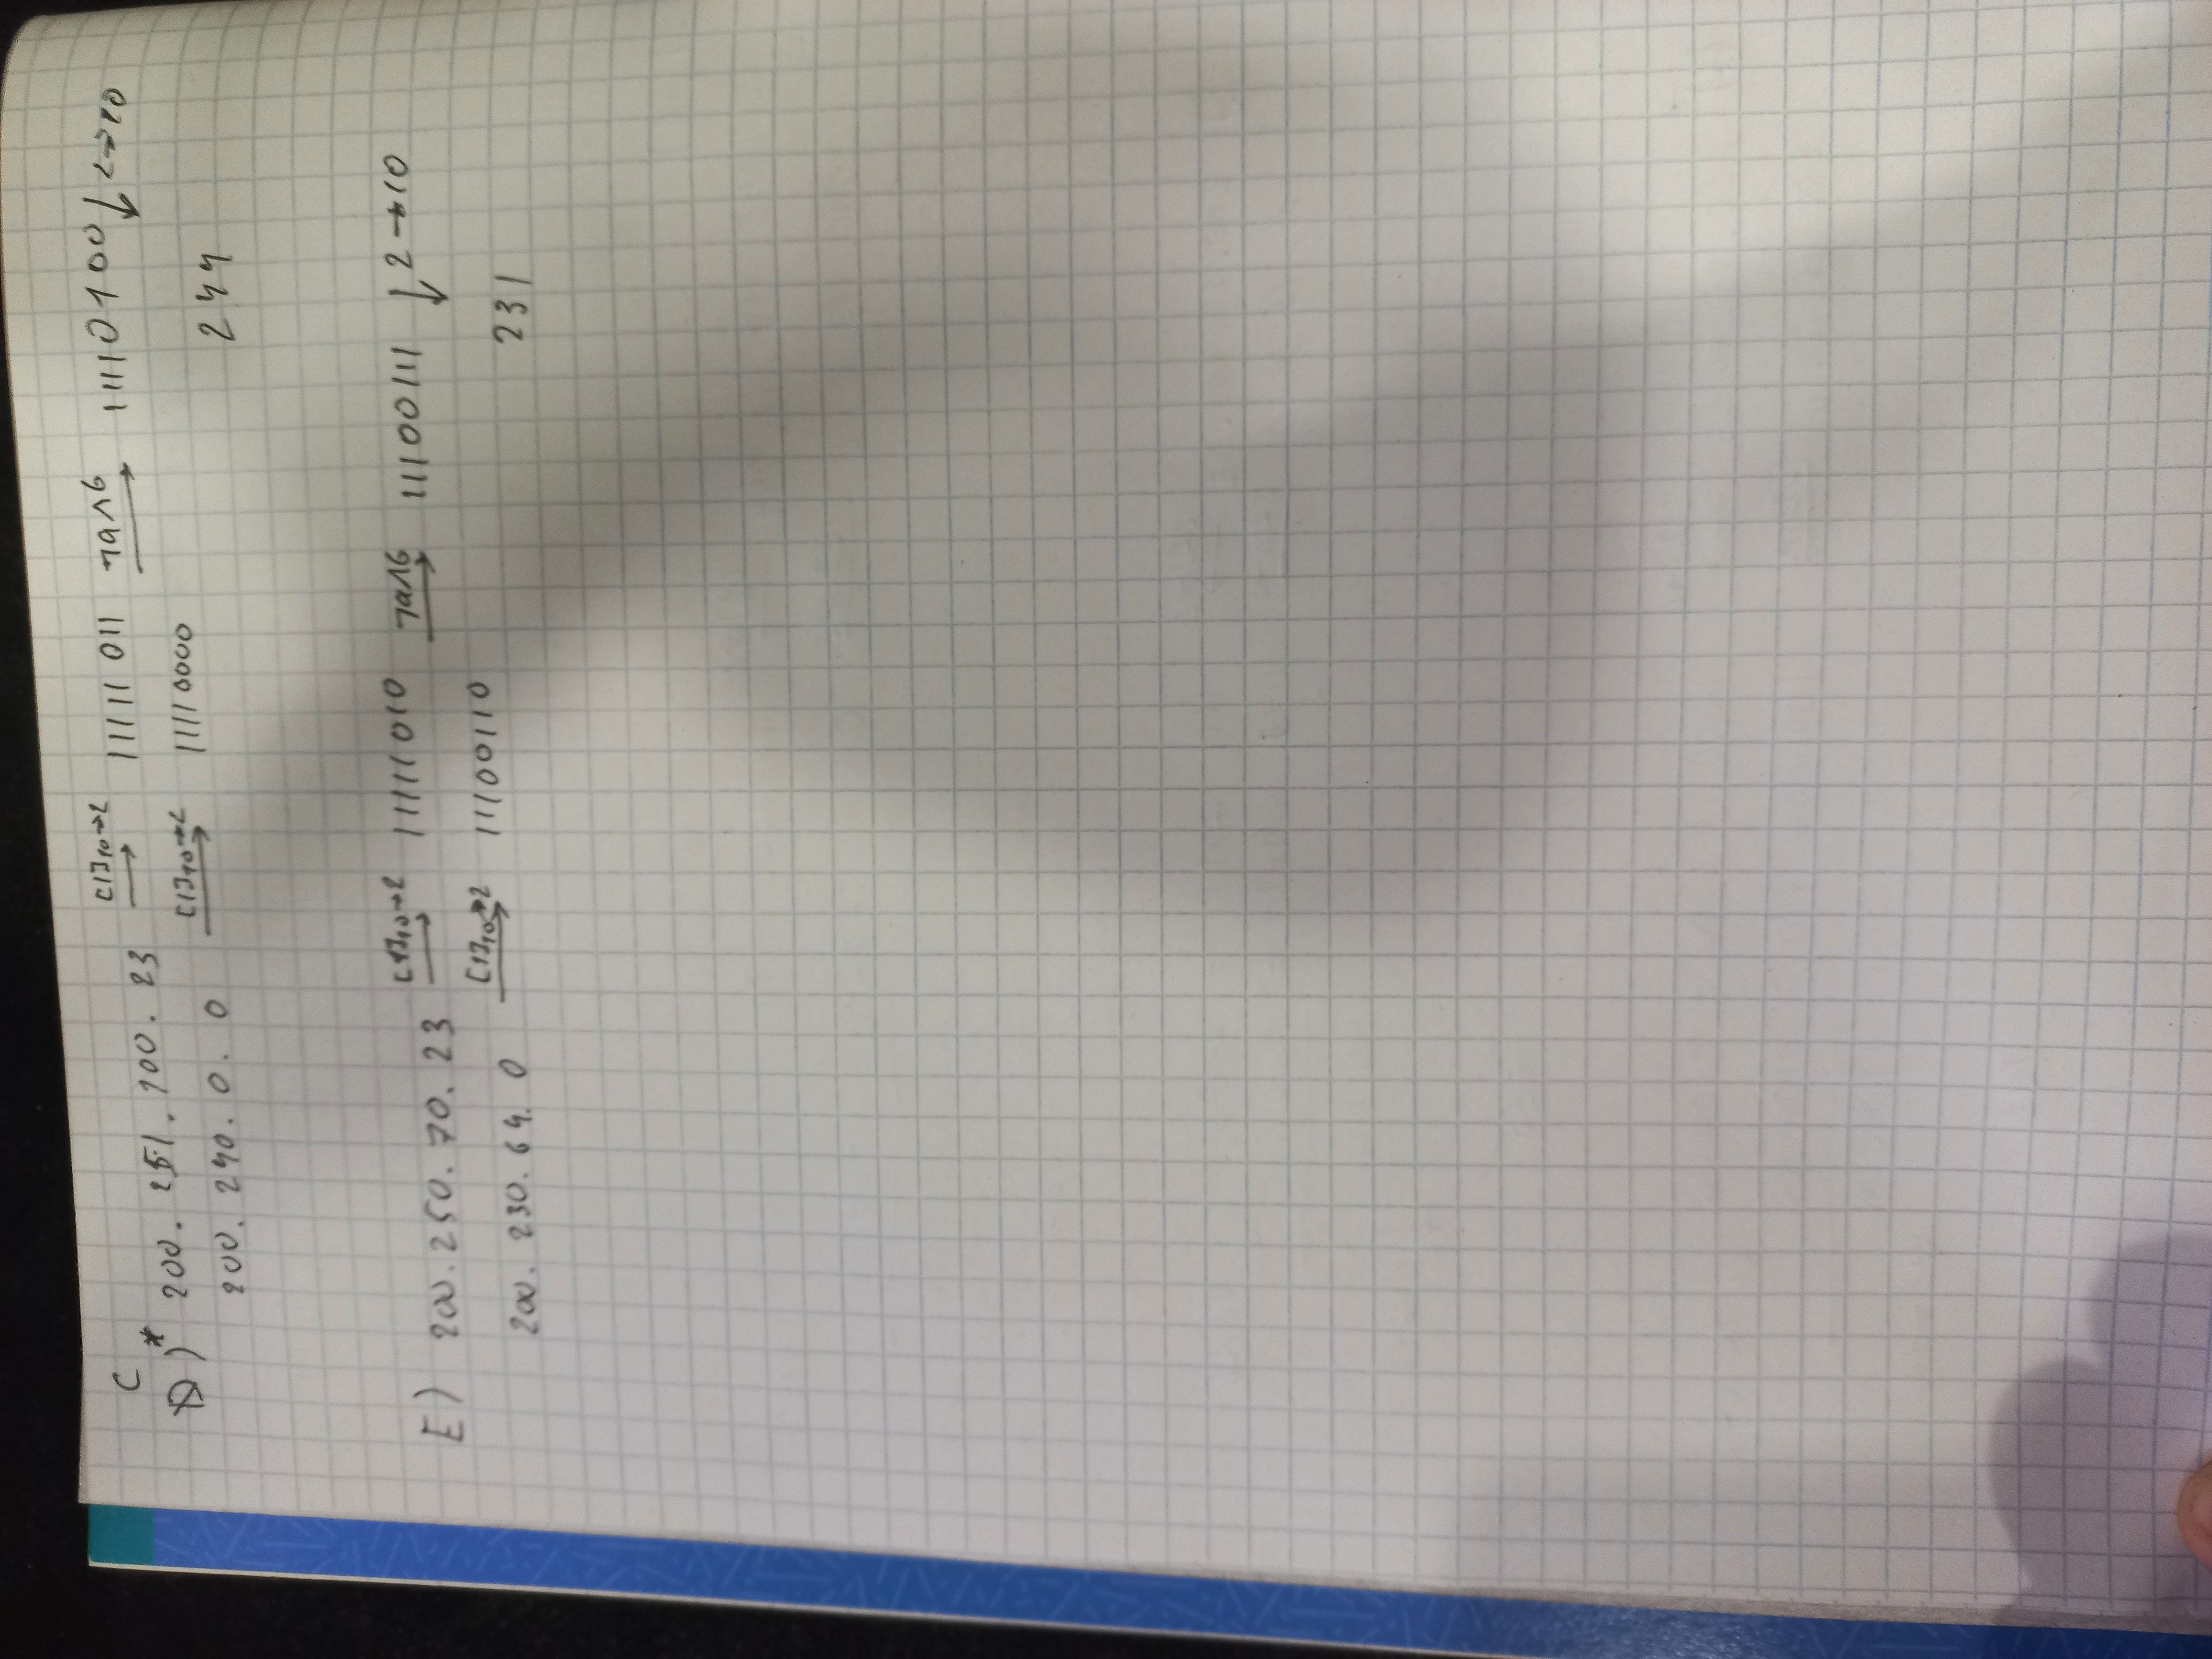 C
D)* 200. 251. 100. 23 [1]10→2 → 11111011 ¬a∧b → 11110100 ↓ 2→10
200. 240. 0. 0 [1]10→2 → 11110000 244
E) 200. 250. 70. 23 [1]10→2 → 11111010 ¬a∧b → 11100111 ↓ 2→10
200. 230. 64. 0 [1]10→2 → 11100110 231